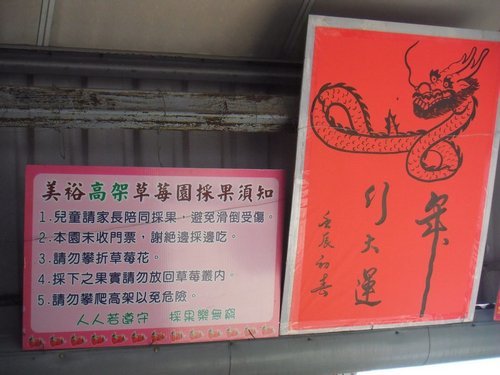 美裕高架草莓園採果須知
1.兒童請家長陪同採果，避免滑倒受傷。
2.本園未收門票，謝絕邊採邊吃。
3.請勿攀折草莓花。
4.採下之果實請勿放回草莓叢內。
5.請勿攀爬高架以免危險。
人人若遵守 採果樂無窮
年
行大運
壬辰初春